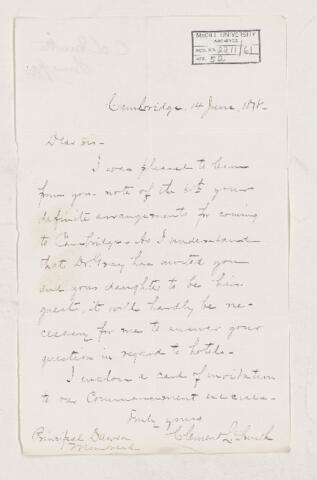 McGILL UNIVERSITY
ARCHIVES
ACC. NO. 2211/61
REF. 52
Cambridge, 14 June, 1878.
Dear Sir -
I was pleased to learn
from your note of the 6th your
definite arrangements for coming
to Cambridge. As I understand
that Dr. Gray has invited you
and your daughter to be his
guest, it will hardly be ne-
cessary for me to answer your
question in regard to hotels.
I enclose a card of invitation
to our Commencement exercises.
Truly yours
Clement L. Smith
Principal Dawson
Montreal